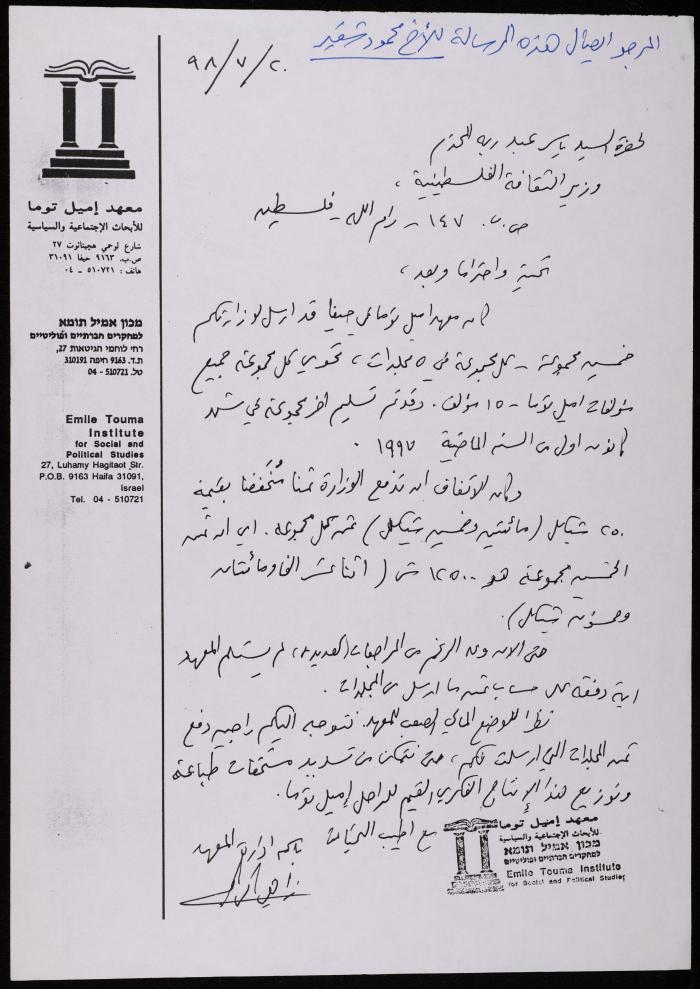 المرجو ايصال هذه الرسالة للأخ محمود شقير
٩٨/٧/٢٠
معهد إميل توما
للأبحاث الإجتماعية والسياسية
شارع لوحمي هجيتائوت ٢٧
ص.ب. ٩١٦٣ حيفا ٣١٠٩١
هاتف : ٥١٠٧٢١ - ٠٤
מכון אמיל תומא
למחקרים חברתיים ופוליטיים
רח' לוחמי הגיטאות 27,
ת.ד. 9163 חיפה 310191
טל. 510721 - 04
Emile Touma
Institute
for Social and
Political Studies
27, Luhamy Hagitaot Str.
P.O.B. 9163 Haifa 31091,
Israel
Tel. 04 - 510721
لحضرة السيد ياسر عبد ربه المحترم
وزير الثقافة الفلسطينية ،
ص.ب. ١٤٧ - رام الله - فلسطين
تحية واحتراما وبعد ،
كان معهد اميل توما في حيفا قد ارسل لوزارتكم
خمسين مجموعة - كل مجموعة في ٥ مجلدات ، تحوي كل مجموعة جميع
مؤلفات اميل توما - ١٥ مؤلف . وقد تم تسليم اخر مجموعة في شهر
كانون اول من السنة الماضية ١٩٩٧ .
وكان الاتفاق ان تدفع الوزارة ثمنا مُخَفَّضا بقيمة
٢٥٠ شيكل (مائتين وخمسين شيكل) ثمن كل مجموعة . اي ان ثمن
الخمسين مجموعة هو ١٢٥٠٠ ش ( اثنا عشر الفا ومائتان
وخمسون شيكل).
حتى الان وعلى الرغم من المراجعات العديدة، لم يستلم المعهد
اية دفعة على حساب ثمن ما ارسل من المجلدات .
نظرا للوضع المالي الصعب للمعهد نتوجه اليكم راجين دفع
ثمن المجلدات التي ارسلت لكم ، حتى نتمكن من تسديد مستحقات طباعة
وتوزيع هذا الإنتاج الفكري القيم للراحل إميل توما .
مع اطيب التحيات
باسم ادارة المعهد
معهد إميل توما
للأبحاث الإجتماعية والسياسية
מכון אמיל תומא
למחקרים חברתיים ופוליטיים
Emile Touma Institute
for Social and Political Studies